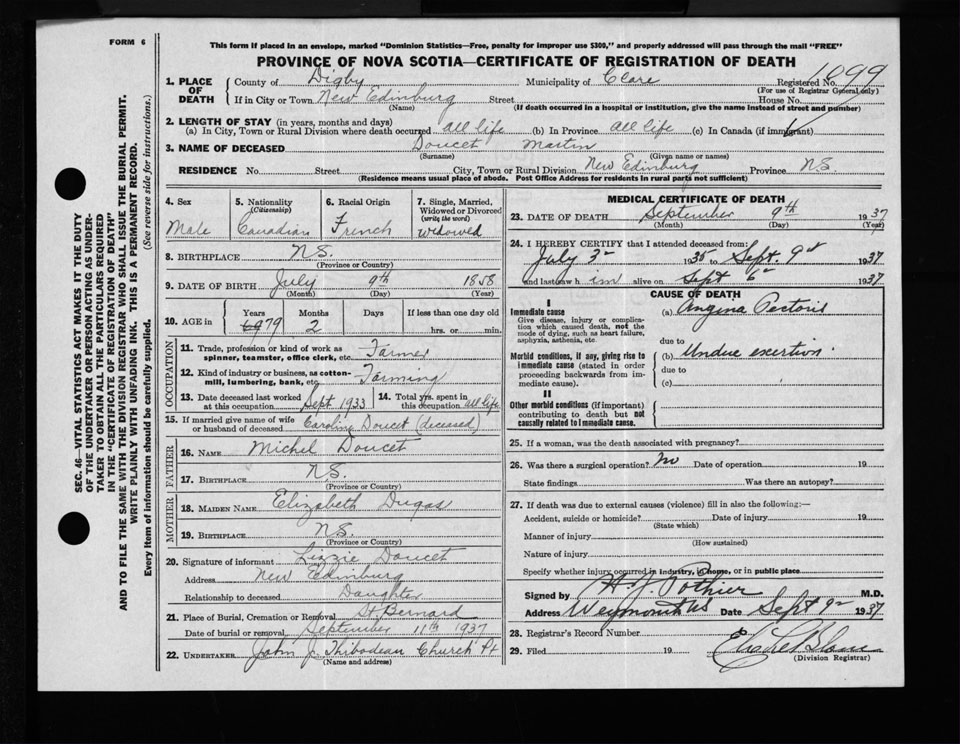 FORM 6
This form if placed in an envelope, marked "Dominion Statistics—Free, penalty for improper use $300," and properly addressed will pass through the mail "FREE"
PROVINCE OF NOVA SCOTIA—CERTIFICATE OF REGISTRATION OF DEATH
1. PLACE OF DEATH
County of Digby Municipality of Clare Registered No. 1099
(For use of Registrar General only)
If in City or Town New Edinburg Street House No.
(Name) (If death occurred in a hospital or institution, give the name instead of street and number)
2. LENGTH OF STAY (in years, months and days)
(a) In City, Town or Rural Division where death occurred all life (b) In Province all life (c) In Canada (if immigrant)
3. NAME OF DECEASED Doucet Martin
(Surname) (Given name or names)
RESIDENCE No. Street City, Town or Rural Division New Edinburg Province N.S.
(Residence means usual place of abode. Post Office Address for residents in rural parts not sufficient)
4. Sex Male
5. Nationality (Citizenship) Canadian
6. Racial Origin French
7. Single, Married, Widowed or Divorced (write the word) widowed
8. BIRTHPLACE N.S.
(Province or Country)
9. DATE OF BIRTH July 9th 1858
(Month) (Day) (Year)
10. AGE in Years Months Days If less than one day old
79 2 hrs. or min.
OCCUPATION
11. Trade, profession or kind of work as spinner, teamster, office clerk, etc. Farmer
12. Kind of industry or business, as cotton-mill, lumbering, bank, etc. Farming
13. Date deceased last worked at this occupation Sept 1933
14. Total yrs. spent in this occupation all life
15. If married give name of wife or husband of deceased Caroline Doucet (deceased)
FATHER
16. NAME Michel Doucet
17. BIRTHPLACE N.S.
(Province or Country)
MOTHER
18. MAIDEN NAME Elizabeth Dugas
19. BIRTHPLACE N.S.
(Province or Country)
20. Signature of informant Lizzie Doucet
Address New Edinburg
Relationship to deceased Daughter
21. Place of Burial, Cremation or Removal St Bernard
Date of burial or removal September 11th 1937
22. UNDERTAKER John J. Thibodeau Church Pt
(Name and address)
MEDICAL CERTIFICATE OF DEATH
23. DATE OF DEATH September 9th 1937
(Month) (Day) (Year)
24. I HEREBY CERTIFY that I attended deceased from:
July 3 1935 to Sept. 9 1937
and last saw h im alive on Sept 6 1937
CAUSE OF DEATH
I
Immediate cause
Give disease, injury or complication which caused death, not the mode of dying, such as heart failure, asphyxia, asthenia, etc.
(a) Angina Pectoris
due to
Morbid conditions, if any, giving rise to immediate cause (stated in order proceeding backwards from immediate cause).
(b) Undue exertion.
due to
(c)
II
Other morbid conditions (if important) contributing to death but not causally related to immediate cause.
25. If a woman, was the death associated with pregnancy?
26. Was there a surgical operation? no Date of operation 19
State findings Was there an autopsy?
27. If death was due to external causes (violence) fill in also the following:—
Accident, suicide or homicide? Date of injury 19
(State which)
Manner of injury
(How sustained)
Nature of injury
Specify whether injury occurred in industry, home, or in public place
Signed by H J Pothier M.D.
Address Weymouth NS Date Sept 9 1937
28. Registrar's Record Number
29. Filed 19
(Division Registrar)
SEC. 46—VITAL STATISTICS ACT MAKES IT THE DUTY
OF THE UNDERTAKER OR PERSON ACTING AS UNDER-
TAKER TO OBTAIN ALL THE PARTICULARS REQUIRED
IN THE "CERTIFICATE OF REGISTRATION OF DEATH"
AND TO FILE THE SAME WITH THE DIVISION REGISTRAR WHO SHALL ISSUE THE BURIAL PERMIT.
WRITE PLAINLY WITH UNFADING INK. THIS IS A PERMANENT RECORD.
Every item of information should be carefully supplied. (See reverse side for instructions.)